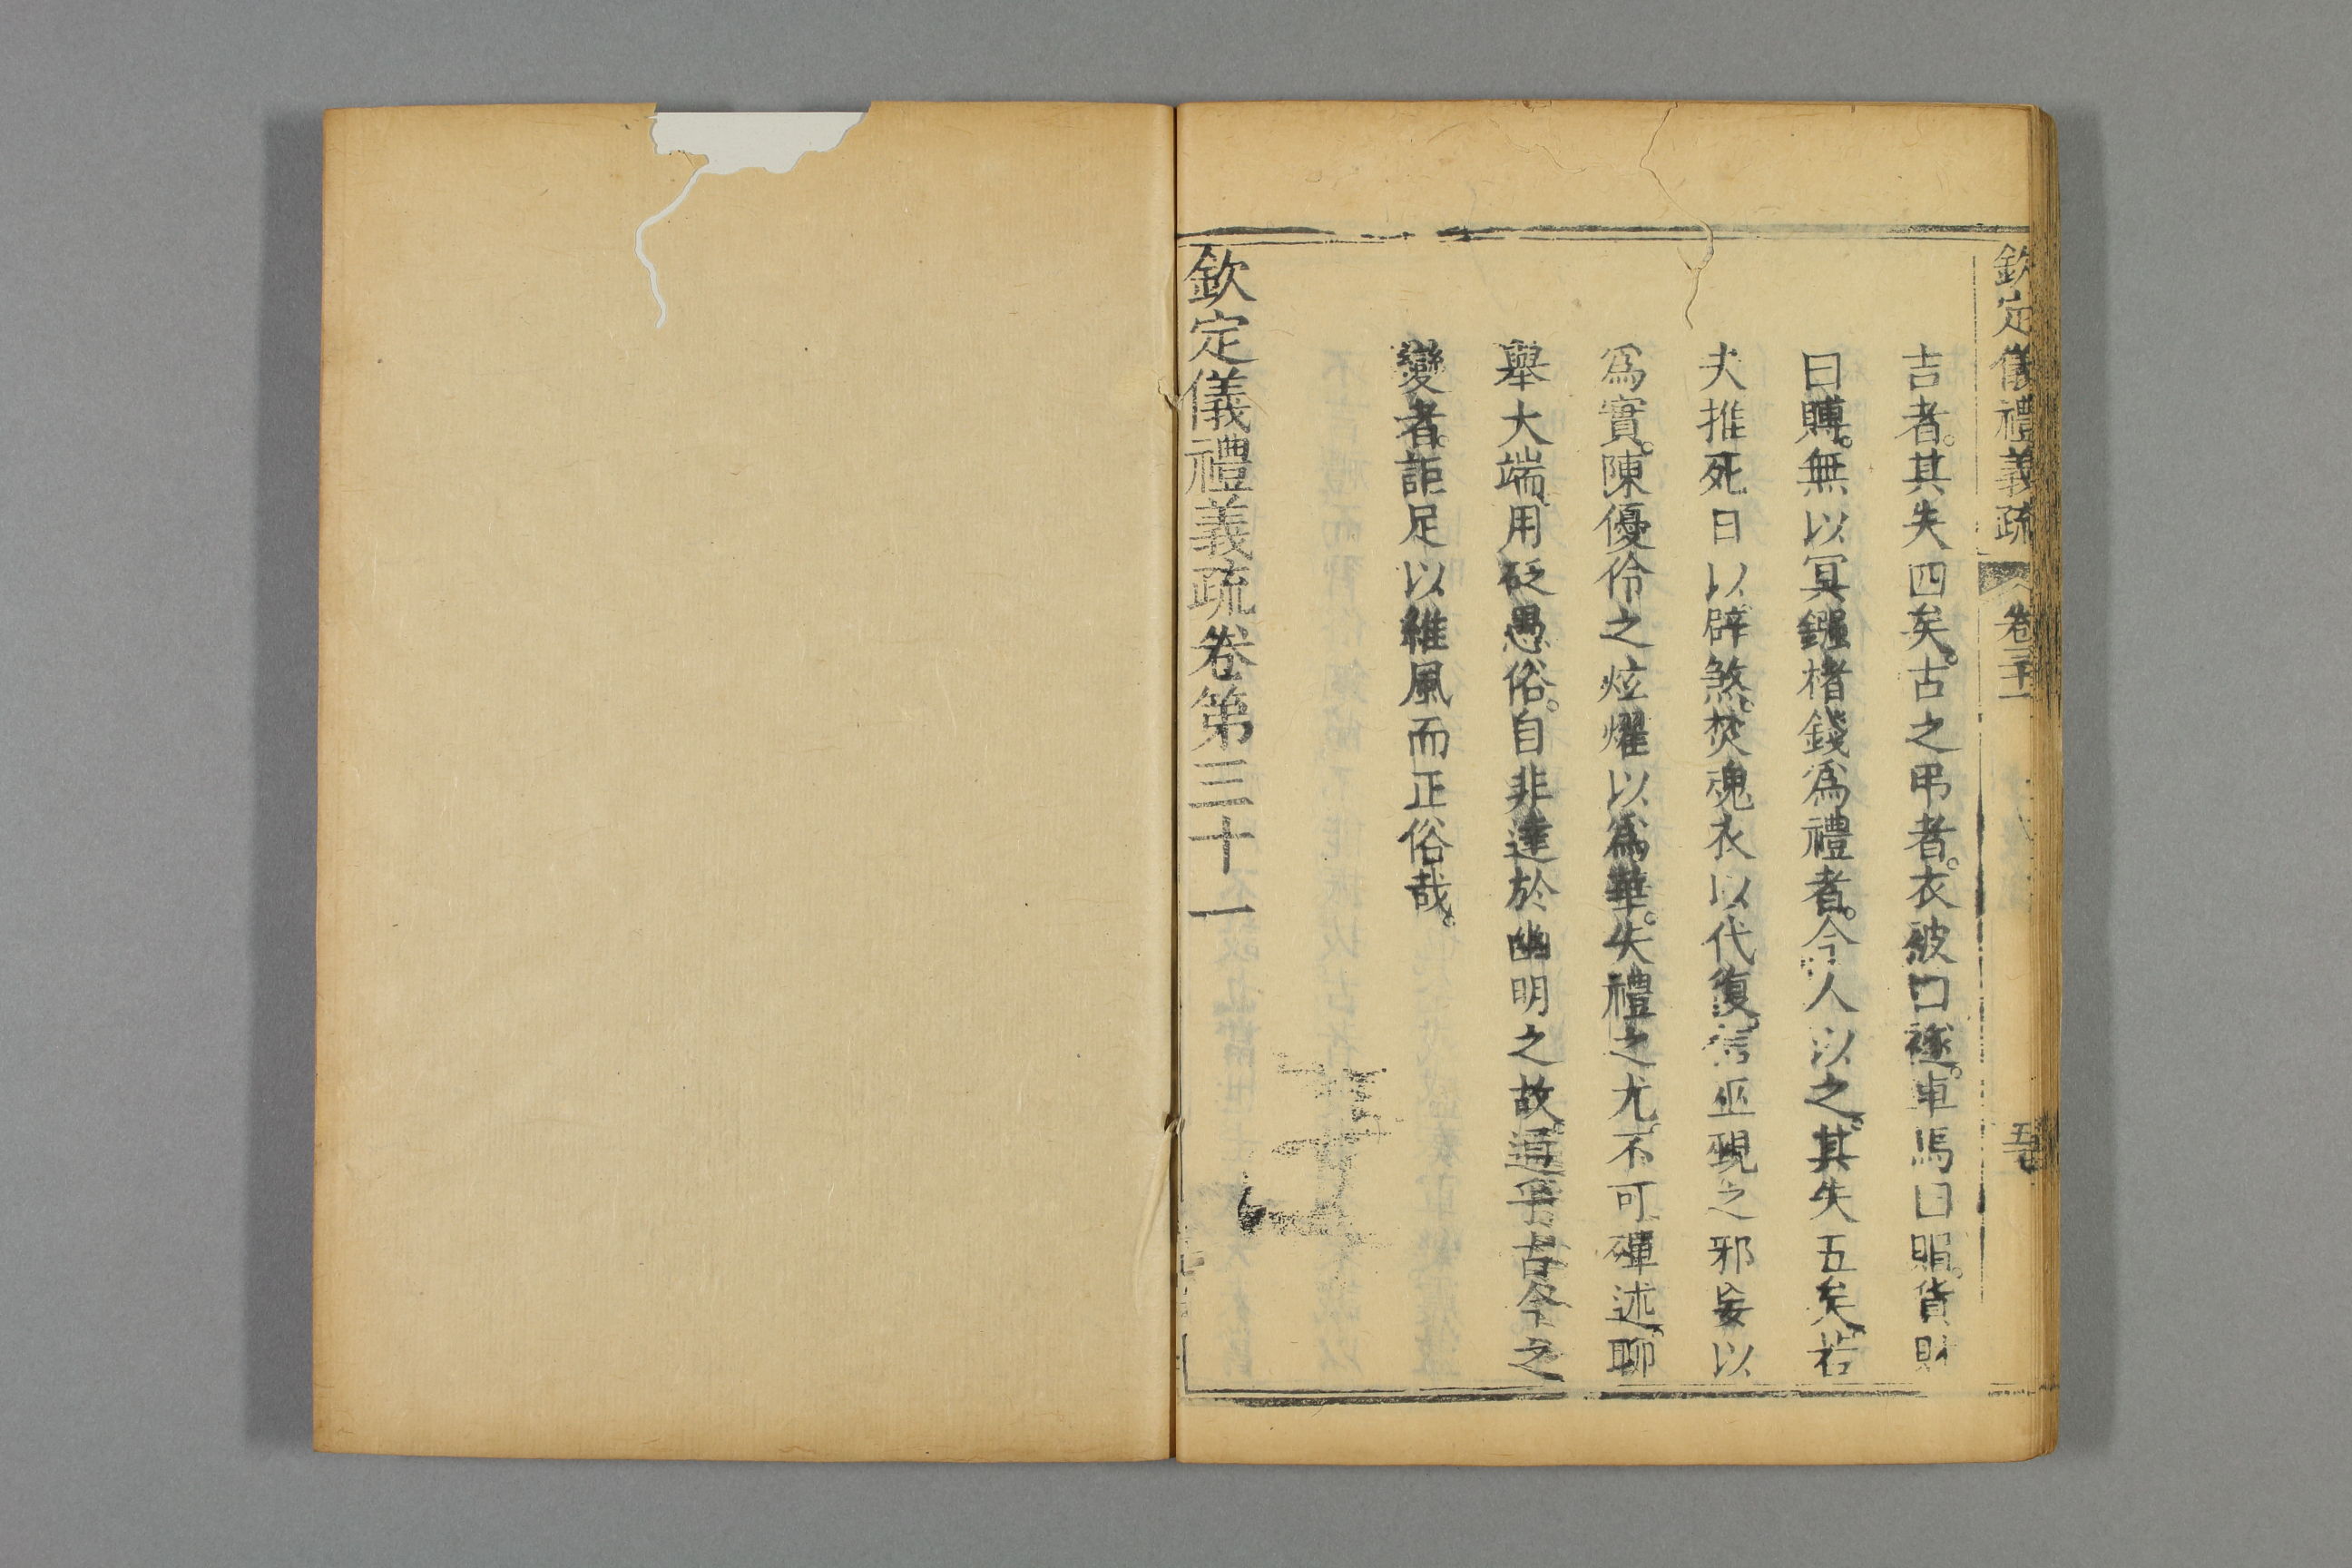 欽定儀禮義疏 卷三十一
吉者。其失四矣。古之弔者。衣被曰襚。車馬曰賵。貨財
曰賻。無以冥鏹楮錢為禮者。今人以之。其失五矣。若
夫推死日以辟煞。焚魂衣以代復。信巫覡之邪妄以
為實。陳優伶之炫燿以為華。失禮之尤。不可殫述。聊
舉大端。用砭愚俗。自非達於幽明之故。通乎古今之
變者。詎足以維風而正俗哉。
欽定儀禮義疏卷第三十一